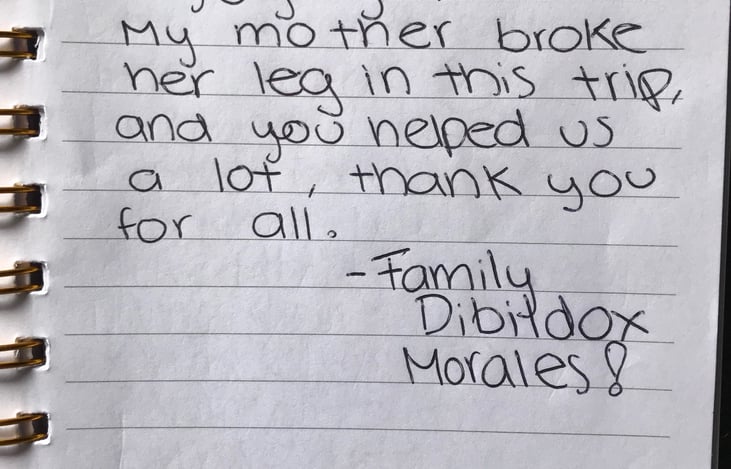 My mother broke
her leg in this trip,
and you helped us
a lot, thank you
for all.
-Family
Dibildox
Morales!